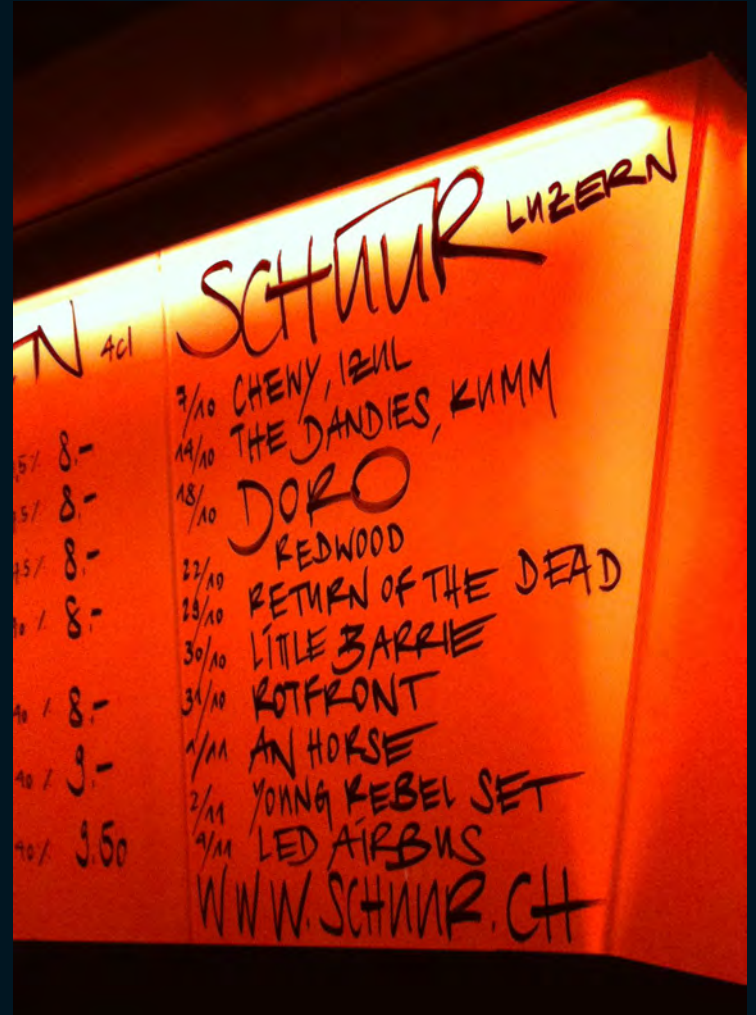 N 4cl
5% 8.-
.5% 8.-
.5% 8.-
% 8.-
40 % 8.-
40 % 9.-
40% 9.50
SCHÜÜR LUZERN
7/10 CHEWY, IZUL
14/10 THE DANDIES, KUMM
18/10 DORO
22/10 REDWOOD
29/10 RETURN OF THE DEAD
30/10 LITTLE BARRIE
31/10 ROTFRONT
1/11 AN HORSE
2/11 YOUNG REBEL SET
4/11 LED AIRBUS
WWW.SCHUUR.CH